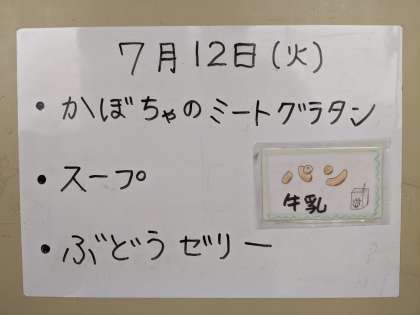 7月12日(火)
・かぼちゃのミートグラタン
・スープ
パン
牛乳
・ぶどうゼリー